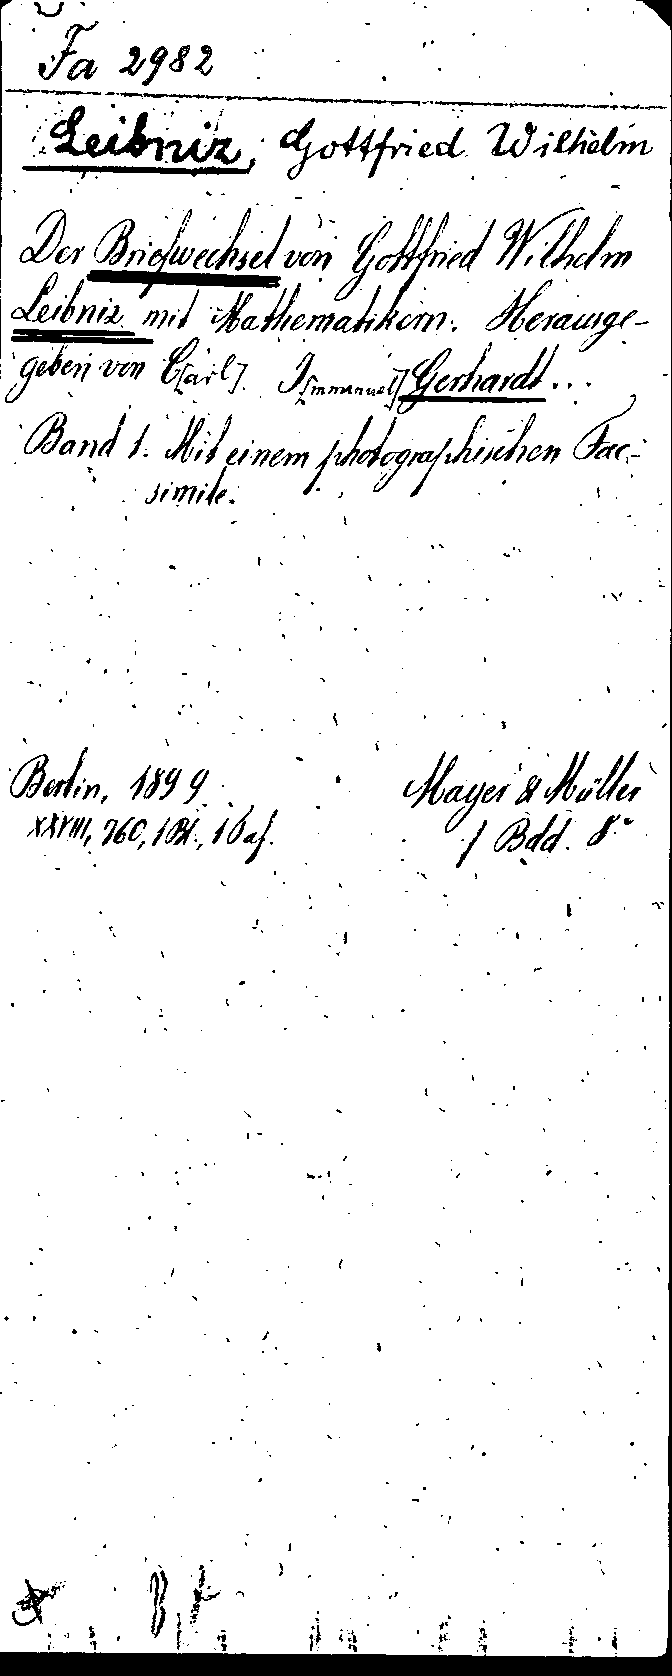 Fa 2982
Leibniz, Gottfried Wilhelm
Der Briefwechsel von Gottfried Wilhelm
Leibniz mit Mathematikern. Herausge-
geben von C[arl] I[mmanuel] Gerhardt...
Band 1. Mit einem photographischen Fac-
simile.
Berlin, 1899 Mayer & Müller
XXVIII, 760, 1 Bl., 1 1 Bdd. 8°